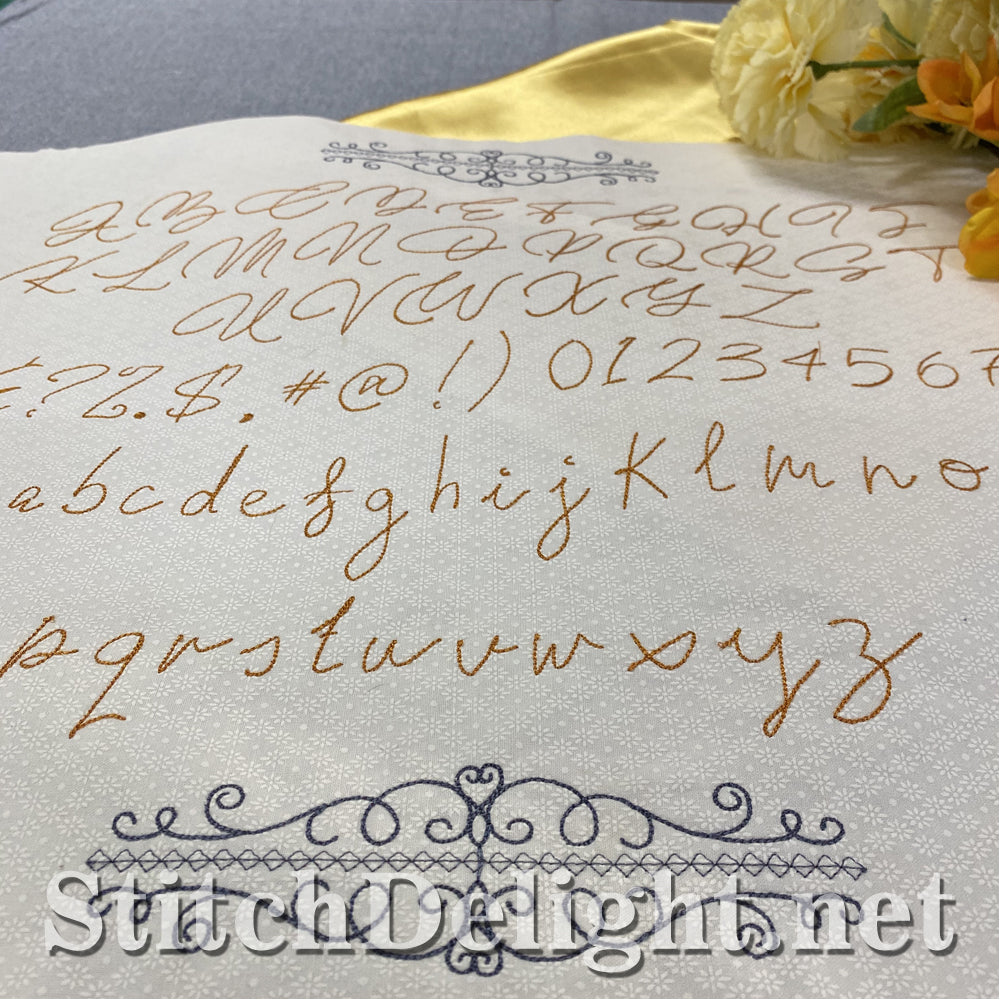 A B C D E F G H I J
K L M N O P Q R S T
U V W X Y Z
? % . $ . # @ ! ) 0 1 2 3 4 5 6 7
a b c d e f g h i j k l m n o
p q r s t u v w x y z
StitchDelight.net